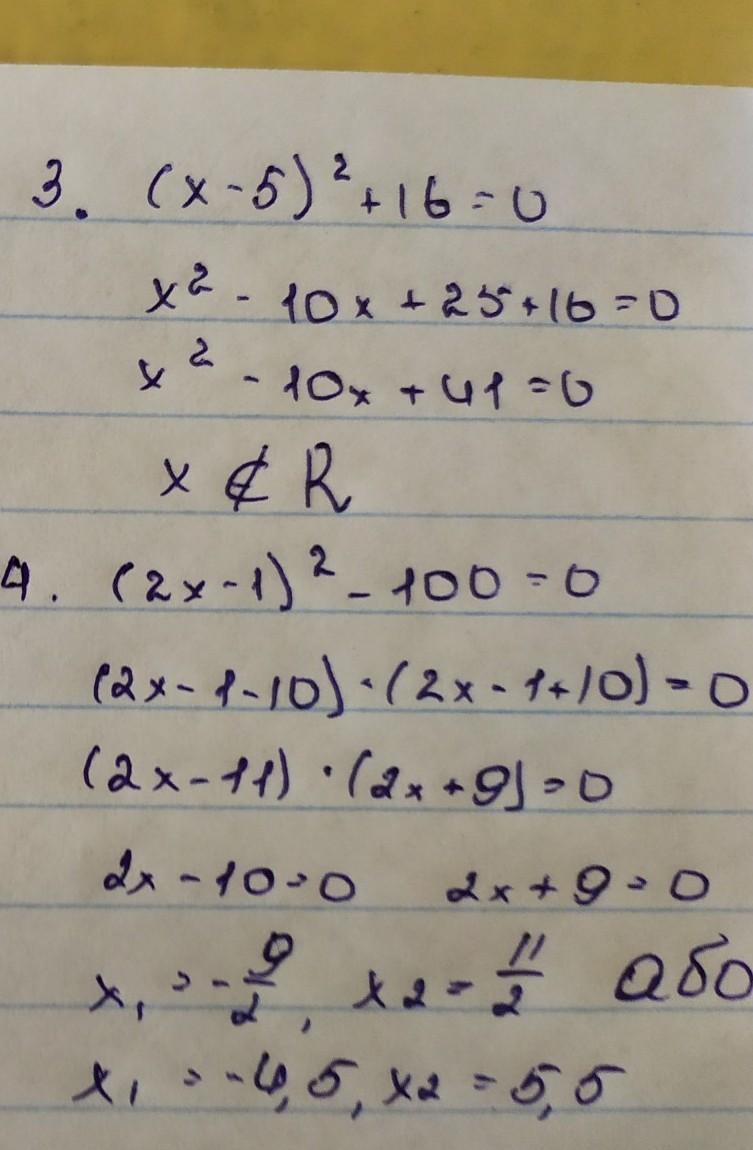 3. (x-5)²+16=0
x²-10x+25+16=0
x²-10x+41=0
x∉R
4. (2x-1)²-100=0
(2x-1-10)·(2x-1+10)=0
(2x-11)·(2x+9)=0
2x-10=0 2x+9=0
x₁=-9/2, x2=11/2 або
x₁=-4,5, x2=5,5